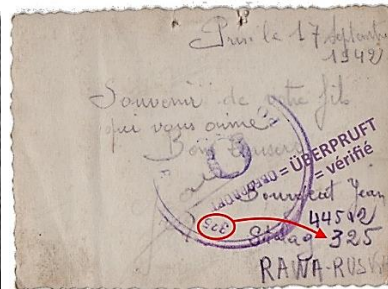 Pris le 17 Septembre
1942
Souvenir de votre fils
qui vous aime
Bons Baisers
= ÜBERPRÜFT
= vérifié
GEPRÜFT
325
Jean
Stalag 325
RAWA-RUSKA